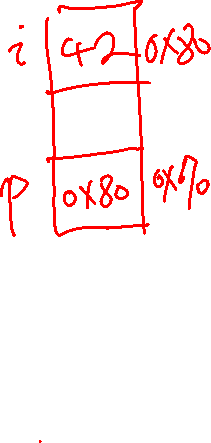 i 42 0x80
p 0x80 0x70